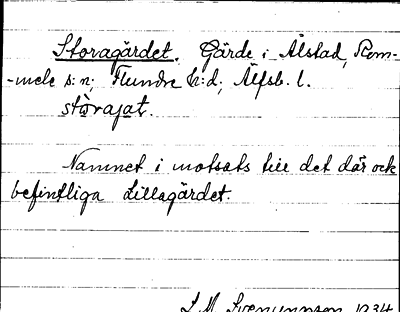 Storagärdet. Gärde i Ålstad, Rom-
-mele s:n; Flundre h:d; Älfsb. l.
stòrajat.
Namnet i motsats till det där ock
befintliga Lillagärdet.
1934